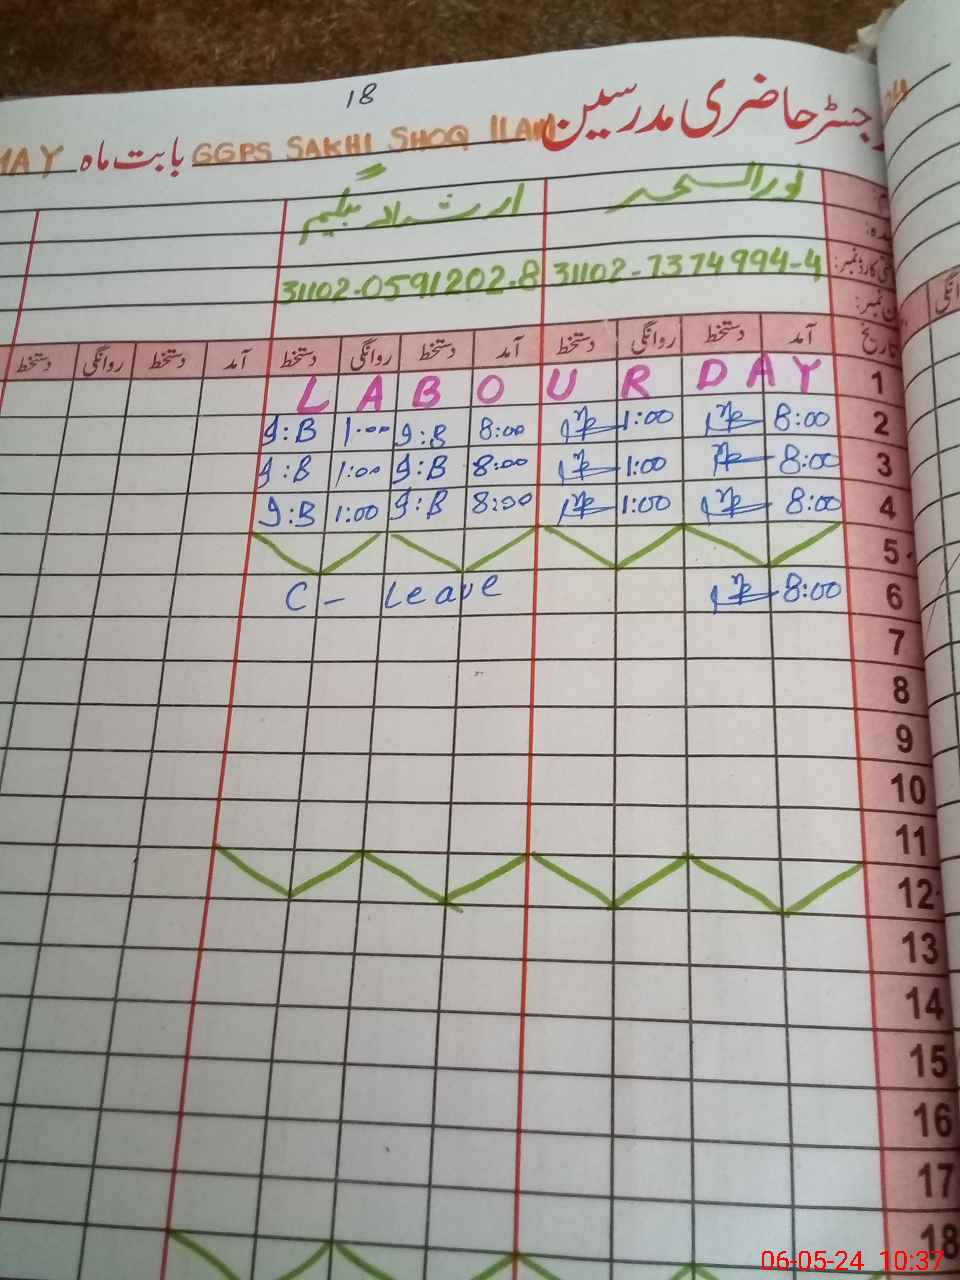 18
رجسٹر حاضری مدرسین GGPS SAKHI SHOQ ILAHI بابت ماہ MAY
نورالسحر ارشاد بیگم
31102-7374994-4 31102-0591202-8
تاریخ آمد دستخط روانگی دستخط آمد دستخط روانگی دستخط آمد دستخط روانگی دستخط
1 LABOUR DAY
2 8:00 1:00 8:00 J:B 1:00 J:B
3 8:00 1:00 8:00 J:B 1:00 J:B
4 8:00 1:00 8:00 J:B 1:00 J:B
5
6 8:00 C - Leave
7
8
9
10
11
12
13
14
15
16
17
18
06-05-24 10:37